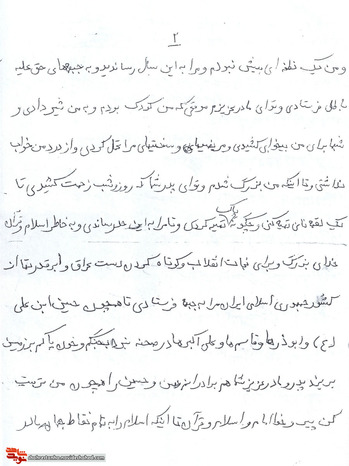 ۲
و من یک نطفه‌ای بیش نبودم و مرا به این سال رساندید و به جبهه‌های حق علیه
باطل فرستادی و توای مادر عزیزم موقعی که من کودک بودم و به من شیر دادی و
شما برای من بیخوابی کشیدی و مریضیهای و سختیهای مرا تحمل کردی و از درد من خواب
نداشتی و تا اینکه من بزرگ شدم و توای پدر شما که روز و شب زحمت کشیدی تا
یک لقمه نانی تهیه کنی و مرا به این حد رساندی و به خاطر اسلام و قرآن
خدای بزرگ و برای نجات انقلاب و کوتاه کردن دست عراق و ابرقدرتها از
کشور جمهوری اسلامی ایران مرا به جبهه فرستادی تا همچون حسین ابن علی
(ع) و ابوذرها و قاسم‌ها و علی اکبرها در صحنه نبرد بجنگم و خون پاکم بر زمین
بریزد پدر و مادر عزیز شما هم برادرانم و حسین را همچون من تربیت
کن پیرو خط امام و اسلام و قرآن تا اینکه اسلام را به تمام نقاط جهان